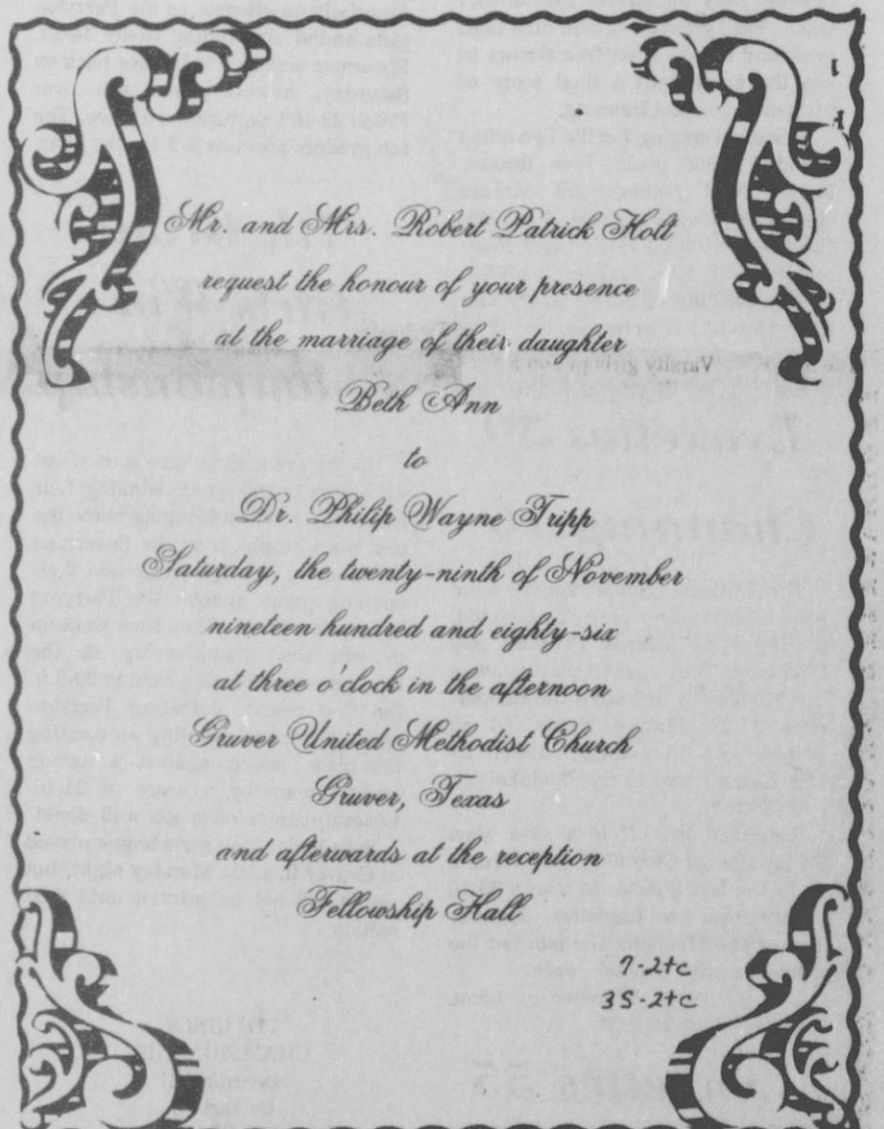 Mr. and Mrs. Robert Patrick Holt
request the honour of your presence
at the marriage of their daughter
Beth Ann
to
Dr. Philip Wayne Tripp
Saturday, the twenty-ninth of November
nineteen hundred and eighty-six
at three o'clock in the afternoon
Gruver United Methodist Church
Gruver, Texas
and afterwards at the reception
Fellowship Hall
7-2tc
35-2tc